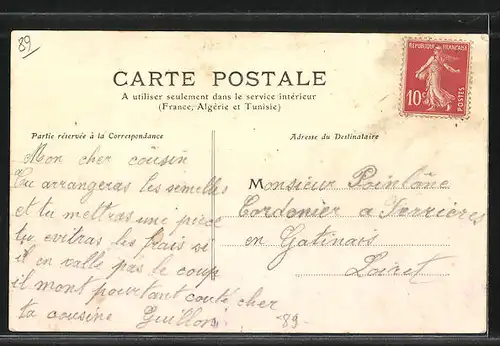 89
CARTE POSTALE
A utiliser seulement dans le service intérieur
(France, Algérie et Tunisie)
RÉPUBLIQUE FRANÇAISE
10c
POSTES
Partie réservée à la Correspondance
Adresse du Destinataire
Mon cher cousin
Tu arrangeras les semelles
et tu mettras une piece
tu evitras les frais si
il en valle pas le coup
il mont pourtant couté cher
ta cousine Guillon
Monsieur Pointane
Cordonier a Ferrieres
en Gatinais
Loiret
89